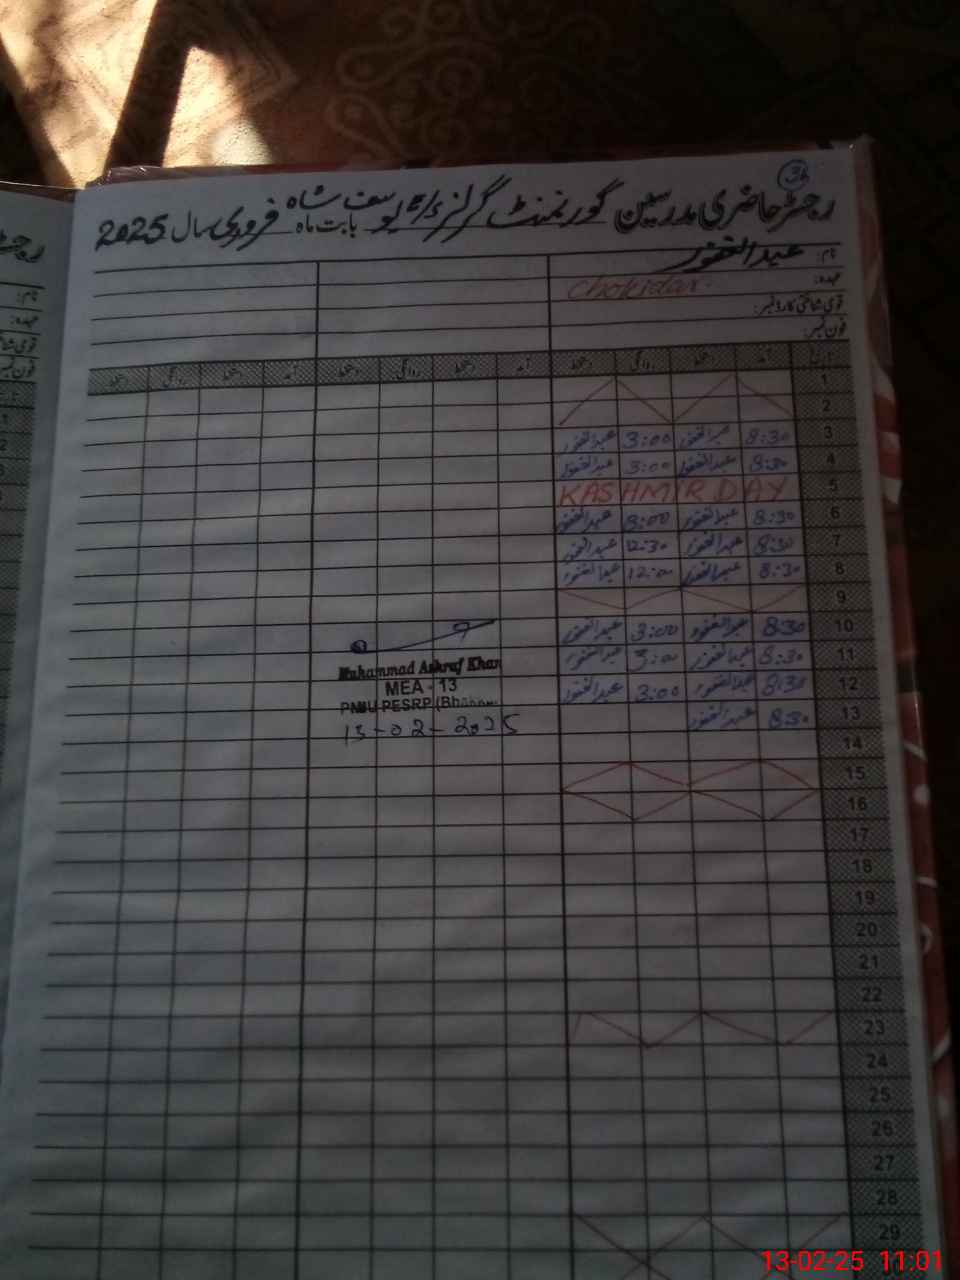 36
رجسٹر حاضری مدرسین گورنمنٹ گرلز یوسف شاہ بابت ماہ فروری سال 2025
نام: عبدالغفور
عہدہ: Chokidar
قومی شناختی کارڈ نمبر:
فون نمبر:
آمد دستخط روانگی دستخط آمد دستخط روانگی دستخط
1
2
3 8:30 عبدالغفور 3:00 عبدالغفور
4 8:30 عبدالغفور 3:00 عبدالغفور
5 KASHMIR DAY
6 8:30 عبدالغفور 3:00 عبدالغفور
7 8:30 عبدالغفور 12:30 عبدالغفور
8 8:30 عبدالغفور 12:00 عبدالغفور
9
10 8:30 عبدالغفور 3:00 عبدالغفور
11 8:30 عبدالغفور 3:00 عبدالغفور
12 8:30 عبدالغفور 3:00 عبدالغفور
13 8:30 عبدالغفور
14
15
16
17
18
19
20
21
22
23
24
25
26
27
28
29
Muhammad Ashraf Khan
MEA - 13
PMIU PESRP
13-02-2025
13-02-25 11:01